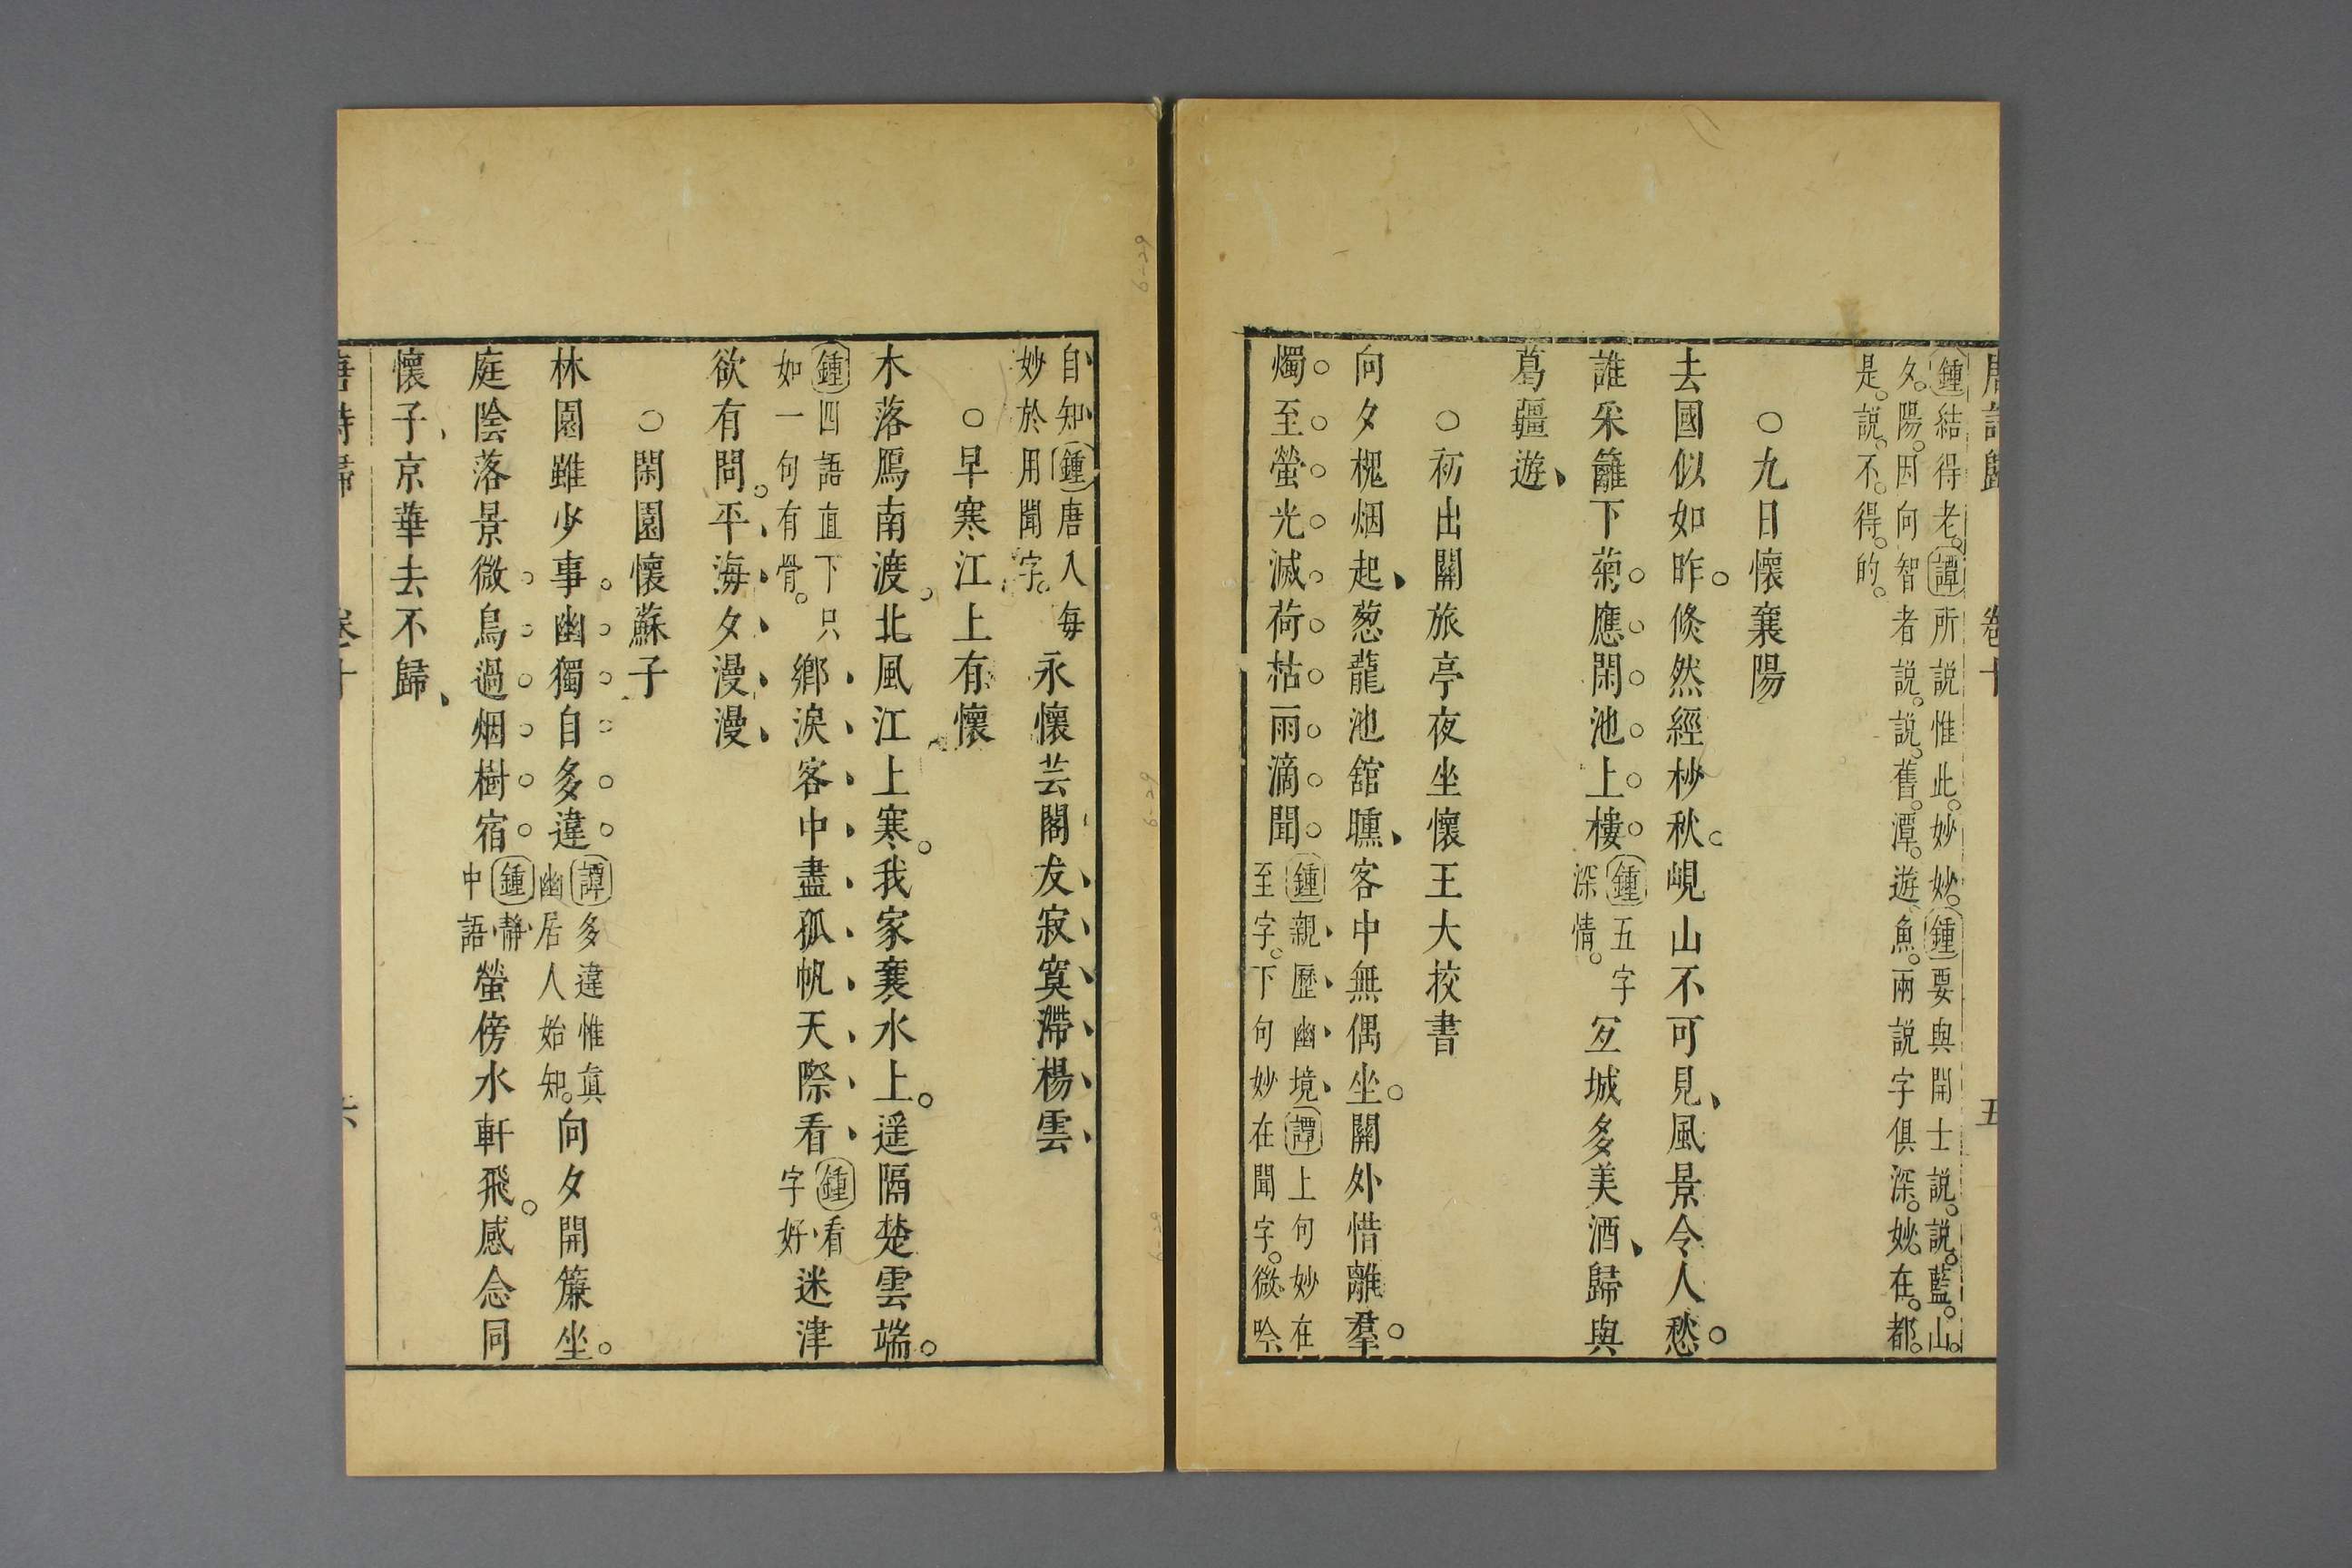 唐詩歸 卷十 五
鍾結得老譚所説惟此妙妙鍾要與開士説説藍山
夕陽因向智者説説舊潭遊魚兩説字俱深妙在都
是説不得的
○九日懷襄陽
去國似如昨倐然經杪秋峴山不可見風景令人愁
誰采籬下菊應閑池上樓鍾五字
深情
冝城多美酒歸與
葛疆遊
○初出關旅亭夜坐懷王大挍書
向夕槐烟起葱蘢池舘曛客中無偶坐關外惜離羣
燭至螢光滅荷枯雨滴聞鍾親歷幽境譚上句妙在
至字下句妙在聞字微吟
自知鍾唐人每
妙於用聞字
永懷芸閣友寂寞滯楊雲
○早寒江上有懷
木落鴈南渡北風江上寒我家襄水上遥隔楚雲端
鍾四語直下只
如一句有骨
鄉淚客中盡孤帆天際看鍾看
字好
迷津
欲有問平海夕漫漫
○閑園懷蘇子
林園雖少事幽獨自多違譚多違惟真
幽居人始知
向夕開簾坐
庭陰落景微鳥過烟樹宿鍾靜
中語
螢傍水軒飛感念同
懷子京華去不歸
唐詩歸 卷十 六